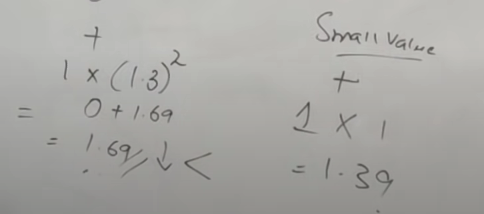 +
1 x (1.3)²
= 0 + 1.69
= 1.69 ↓ <
Small value
+
1 x 1
= 1.39